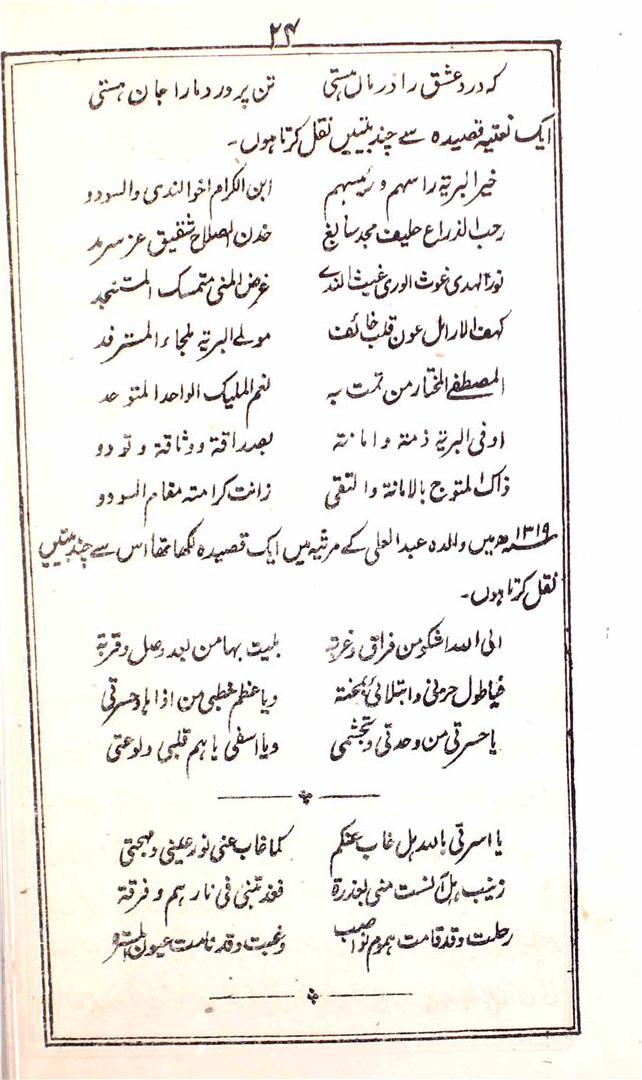 ۲۴
که درد عشق را درمان هستی تن پرور دمارا جان هستی
ایک نعتیہ قصیدہ سے چند بیتیں نقل کرتا ہوں۔
خیر البریۃ راسہم و رئیسہم ابن الکرام اخو الندی والسودو
رحب الذراع حلیف مجد سابغ خدن الصلاح شفیق عز سرمد
نور الہدی غوث الوری غیث الندے غرض المنی متمسک المستنجد
کہف الارامل عون قلب خائف مولے البریۃ ملجاء المسترفد
المصطفے المختار من تمت بہ نعم الملیک الواحد المتوحد
اوفی البریۃ ذمتہ و امانتہ بصداقۃ ووثاقۃ وتودو
ذاک المتوج بالامانۃ والتقی زانت کرامتہ مقام السودو
۱۳۱۹ھ میں والدہ عبد العلی کے مرثیہ میں ایک قصیدہ لکھا تھا اس سے چند بیتیں
نقل کرتا ہوں۔
الی اللہ اشکو من فراق وغربۃ بلیت بہا من بعد وصل وقربۃ
فیاطول حرمنی وابتلائی بمحنتہ ویاعظم خطبی من اذا ہا وحسرتی
یا حسرتی من وحدتی وتجشمی ویااسفی یا ہم قلبی ولوعتی
یا اسرتی باللہ ہل غاب عنکم کما غاب عنی نور عینی ومہجتی
زینب ہل آنست منی بغدرۃ فعذبتنی فی نار ہم وفرقۃ
رحلت وقد قامت ہموم نواصب وغبت وقد نامت عیون